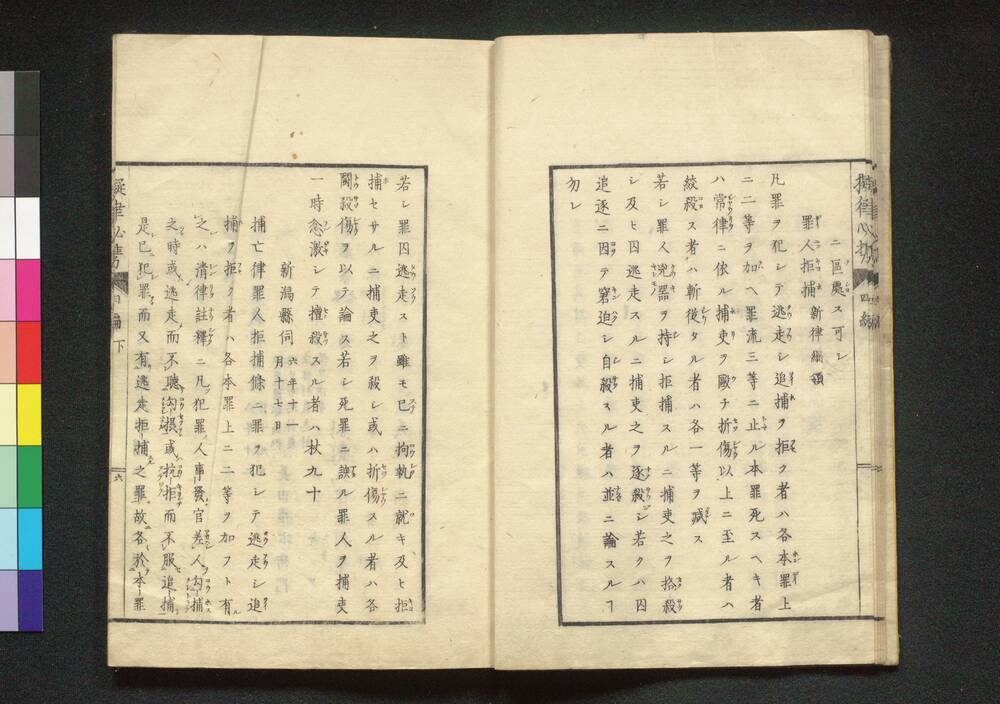 ニ區處ス可シ
罪人拒捕 新律綱領
凡罪ヲ犯シテ逃走シ追捕ヲ拒ク者ハ各本罪上
ニ二等ヲ加ヘ罪流三等ニ止ル本罪死スヘキ者
ハ常律ニ依ル捕吏ヲ毆チ折傷以上ニ至ル者ハ
絞殺ス者ハ斬從タル者ハ各一等ヲ減ス
若シ罪人兇器ヲ持シ拒捕スルニ捕吏之ヲ格殺
シ及ヒ囚逃走スルニ捕吏之ヲ逐殺シ若クハ囚
追逐ニ因テ窘迫シ自殺スル者ハ並ニ論スルヿ
勿レ
若シ罪囚逃走スト雖モ已ニ拘執ニ就キ及ヒ拒
捕セサルニ捕吏之ヲ殺シ或ハ折傷スル者ハ各
鬪殺傷ヲ以テ論ス若シ死罪ニ該ル罪人ヲ捕吏
一時忿激シテ擅殺スル者ハ杖九十
新潟縣伺 六年十一月十七日
捕亡律罪人拒捕條ニ罪ヲ犯シテ逃走シ追
捕ヲ拒ク者ハ各本罪上ニ二等ヲ加フト有
之ハ清律註釋ニ凡犯罪人事發官差人勾捕
之時或逃走而不聽勾攝或抗拒而不服追捕
是已犯罪而又有逃走拒捕之罪故各於本罪
四編 下
六